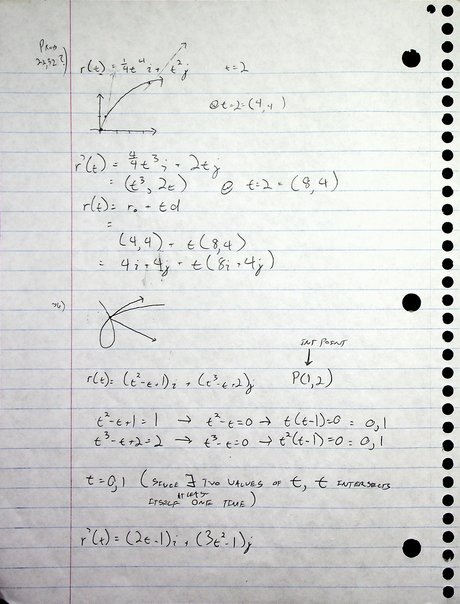 r(t) = 1/4 t⁴ i + t² j t=2
@ t=2 = (4,4)
r'(t) = 4/4 t³ i + 2t j
= (t³, 2t) @ t=2 = (8,4)
r(t) = r₀ + td
=
(4,4) + t(8,4)
= 4i + 4j + t(8i + 4j)
INT POINT
r(t) = (t²-t+1)i + (t³-t+2)j P(1,2)
t²-t+1 = 1 → t²-t=0 → t(t-1)=0 = 0,1
t³-t+2 = 2 → t³-t=0 → t²(t-1)=0 = 0,1
t=0,1 (SINCE ∃ TWO VALUES OF t, t INTERSECTS
AT LEAST
ITSELF ONE TIME)
r'(t) = (2t-1)i + (3t²-1)j